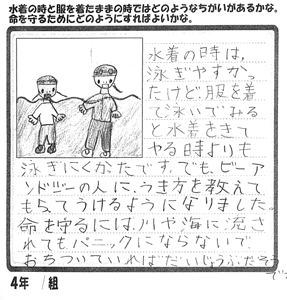 水着の時と服を着たままの時ではどのようなちがいがあるかな。
命を守るためにどのようにすればよいかな。
水着の時は、
泳ぎやすかっ
たけど、服を着
て泳いでみる
と水着をきて
やる時よりも
泳ぎにくかたです。でも、ビーア
の人に、うき方を教えて
もらてうけるようになりました。
命を守るには、川や海に流さ
れてもパニックにならないで
おちついていればだいじょうぶだそう
です
4年 組